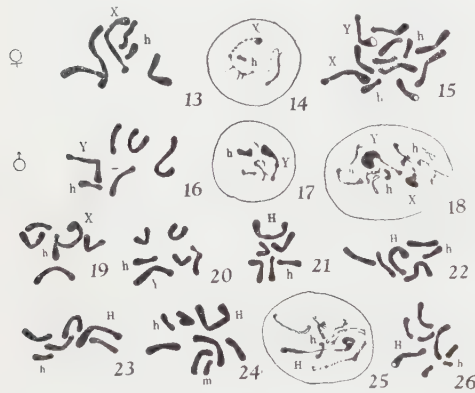 ♀ X h 13 X h h 14 Y h X h 15
♂ Y h 16 h Y 17 Y h h X 18
X h 19 h 20 H h 21 H h 22
H h 23 h H m 24 h H 25 H h 26